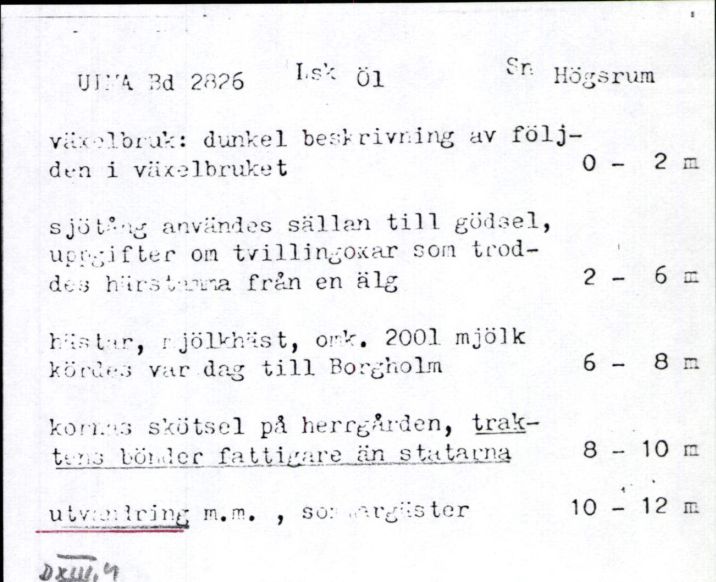 ULMA Bd 2826 Lsk Öl Sn Högsrum
växelbruk: dunkel beskrivning av följ-
den i växelbruket 0 - 2 m
sjötång användes sällan till gödsel,
uppgifter om tvillingoxar som trod-
des härstamma från en älg 2 - 6 m
hästar, mjölkhäst, omk. 200l mjölk
kördes var dag till Borgholm 6 - 8 m
kornas skötsel på herrgården, trak-
tens bönder fattigare än statarna 8 - 10 m
utvandring m.m. , sommargäster 10 - 12 m
DXIII,4